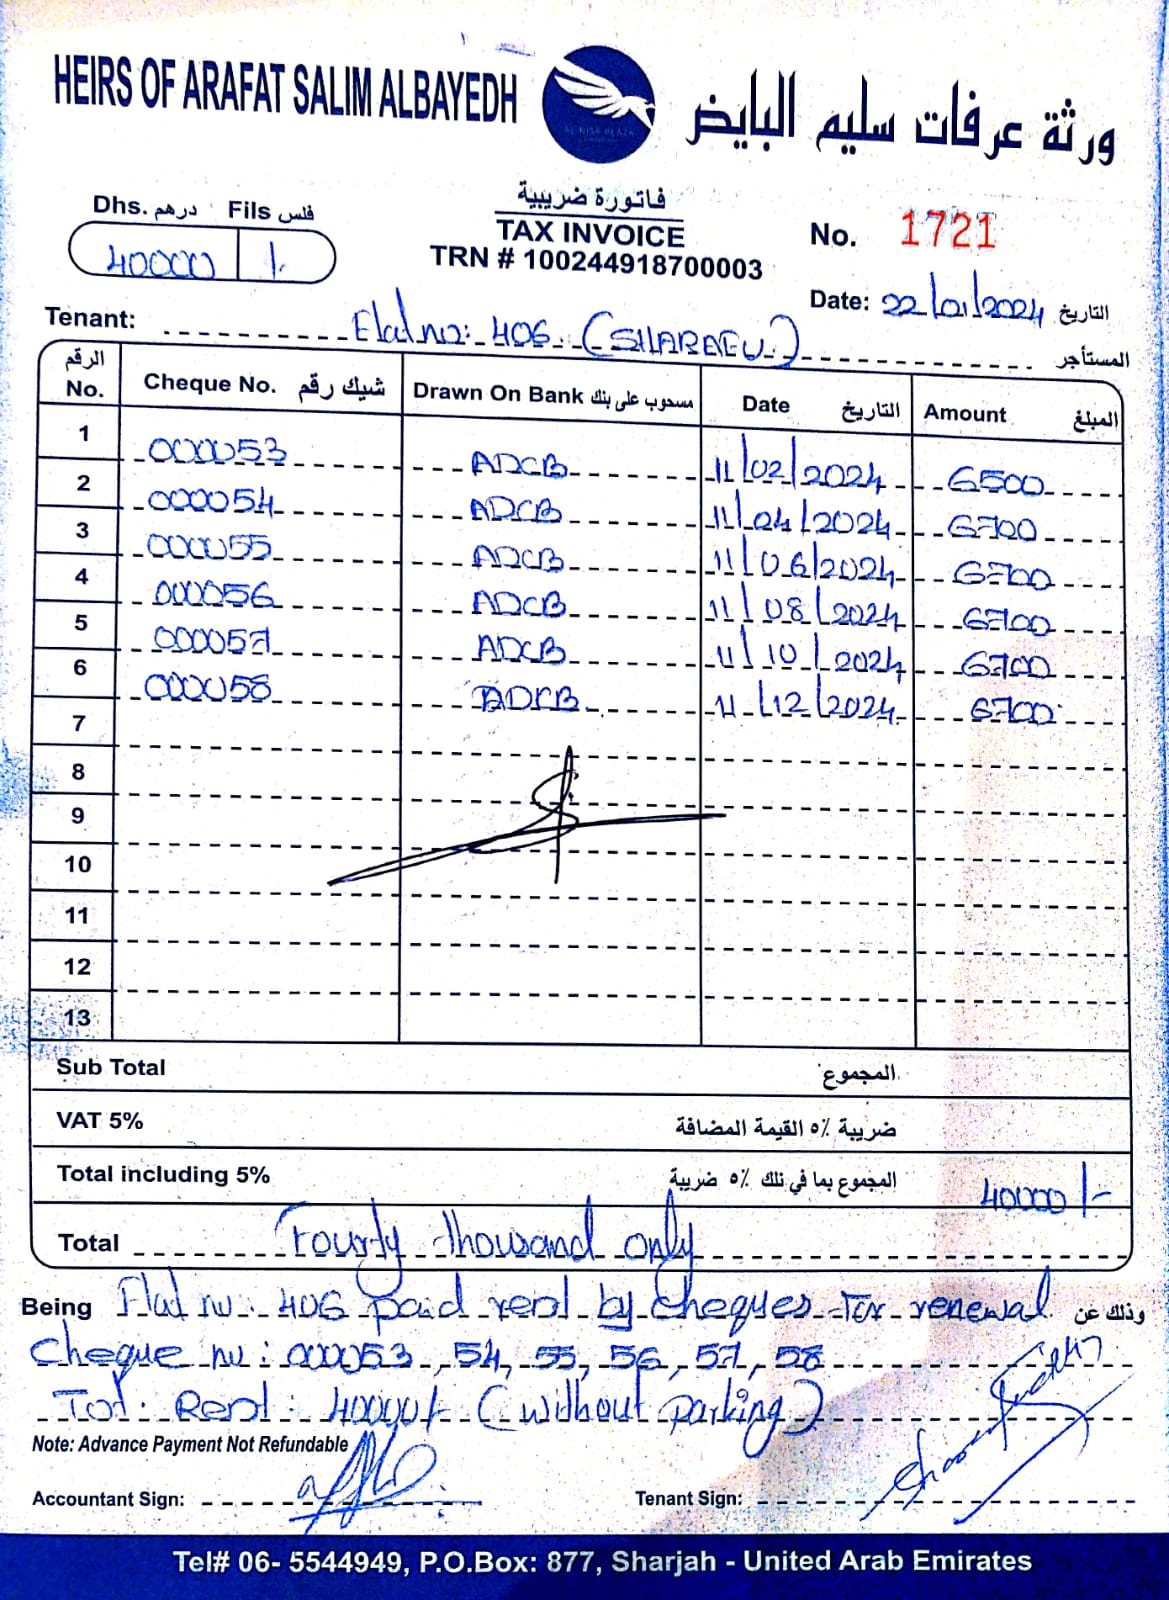 HEIRS OF ARAFAT SALIM ALBAYEDH
AL NISR PLAZA
ورثة عرفات سليم البايض
Dhs. درهم Fils فلس
40000 /-
فاتورة ضريبية
TAX INVOICE
TRN # 100244918700003
No. 1721
Date: 22/01/2024 التاريخ
Tenant: Flat no: 406 (SHARAFU) المستأجر
الرقم No. Cheque No. شيك رقم Drawn On Bank مسحوب على بنك Date التاريخ Amount المبلغ
1 000053 ADCB 11/02/2024 6500
2 000054 ADCB 11/04/2024 6700
3 000055 ADCB 11/06/2024 6700
4 000056 ADCB 11/08/2024 6700
5 000057 ADCB 11/10/2024 6700
6 000058 ADCB 11/12/2024 6700
7
8
9
10
11
12
13
Sub Total المجموع
VAT 5% ضريبة ٥٪ القيمة المضافة
Total including 5% المجموع بما في ذلك ٥٪ ضريبة 40000/-
Total Fourty thousand only
Being Flat no: 406 paid rent by cheques for renewal وذلك عن
Cheque no: 000053, 54, 55, 56, 57, 58
Tot. Rent: 40000/- (without parking)
Note: Advance Payment Not Refundable
Accountant Sign:
Tenant Sign:
Tel# 06- 5544949, P.O.Box: 877, Sharjah - United Arab Emirates